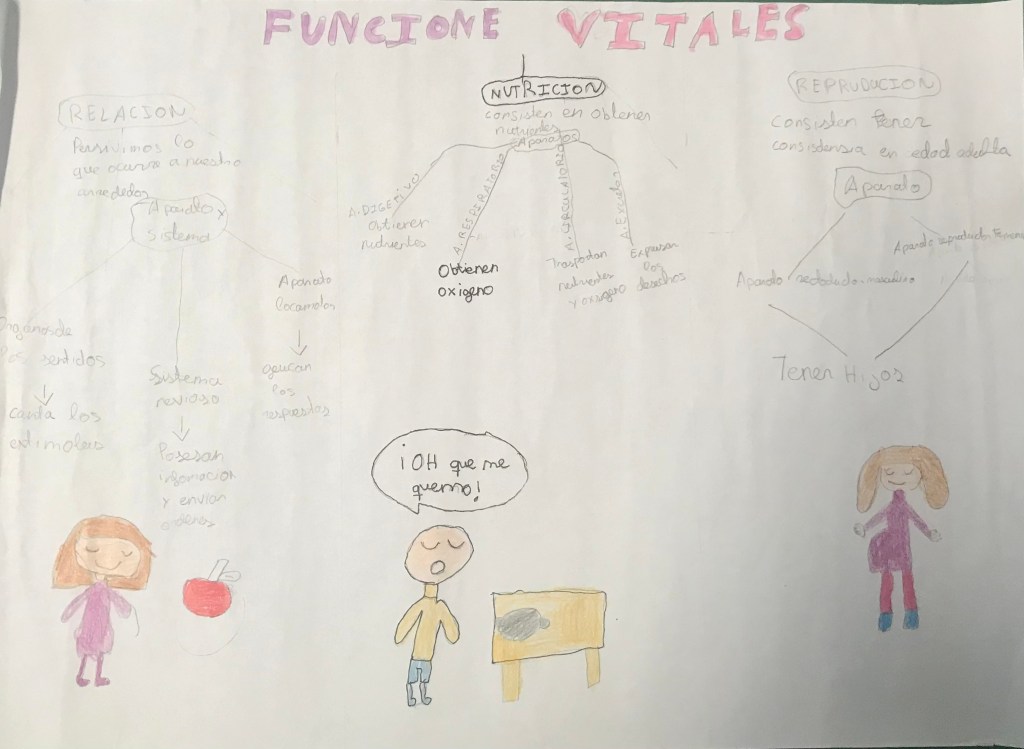 FUNCIONE VITALES
RELACION
Persivimos lo
que ocurre a nuestro
Aparato y
sistema
Organos de
los sentidos
los
Sistema
nevioso
y envian
Aparato
locamotor
los
NUTRICION
consisten en obtener
nutrientes
Aparatos
A. DIGETIVO
Obtiener
nutrientes
A. RESPIRATORIO
Obtienen
oxigeno
A. CIRCULATORIO
Trasportan
nutrientes
y oxigeno
A. Excretor
Expulsan
los
desechos
REPRUDUCION
Consisten tener
consistensia en edad adulta
Aparato
Aparato masculino
Aparato reproductor
Tener Hijos
¡OH que me
quemo!